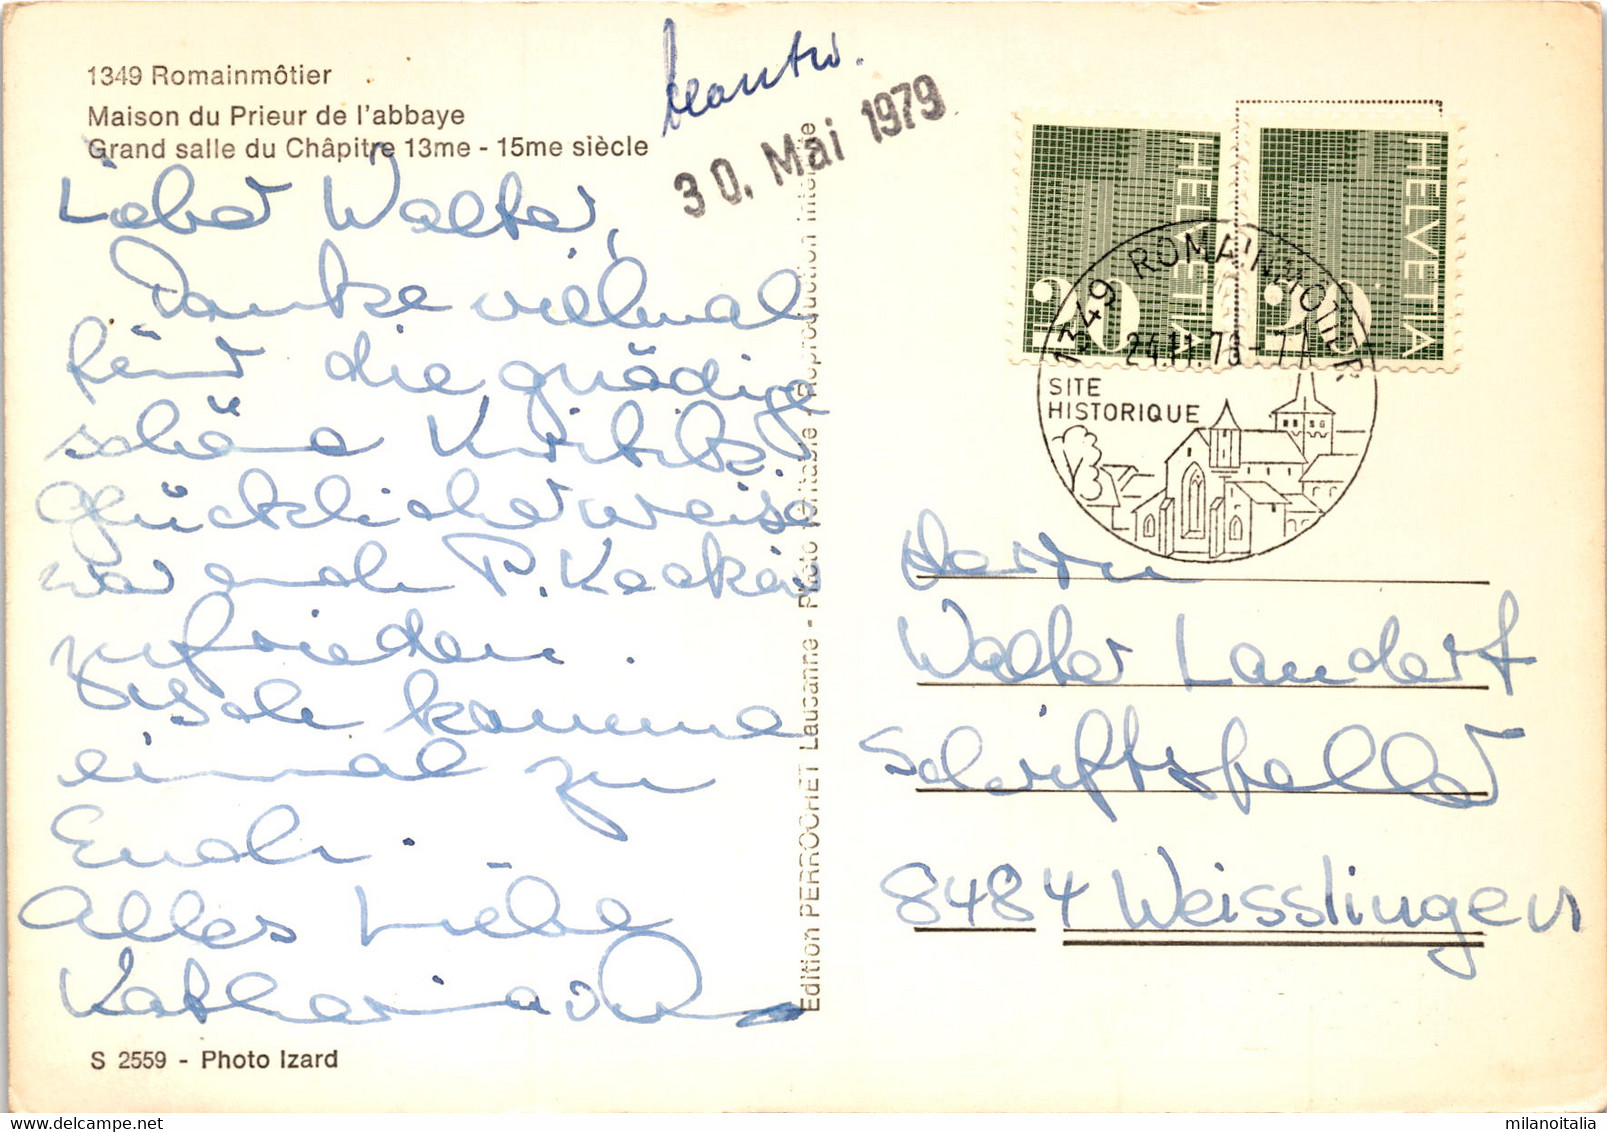 1349 Romainmôtier
Maison du Prieur de l'abbaye
Grand salle du Châpitre 13me - 15me siècle
beantw.
30. Mai 1979
Lieber Walter,
Danke vielmal
für die gnädige
schöne Kritik.
Glücklicherweise
war auch P. Keckeis
zufrieden.
Ich komme
einmal zu
Euch.
Alles Liebe
Katharina
S 2559 - Photo Izard
Edition PERROCHET Lausanne - Photo véritable - Reproduction interdite
HELVETIA
20
HELVETIA
20
1349 ROMAINMÔTIER
SITE
HISTORIQUE
Herrn
Walter Landert
Schriftsteller
8484 Weisslingen
milanoitalia